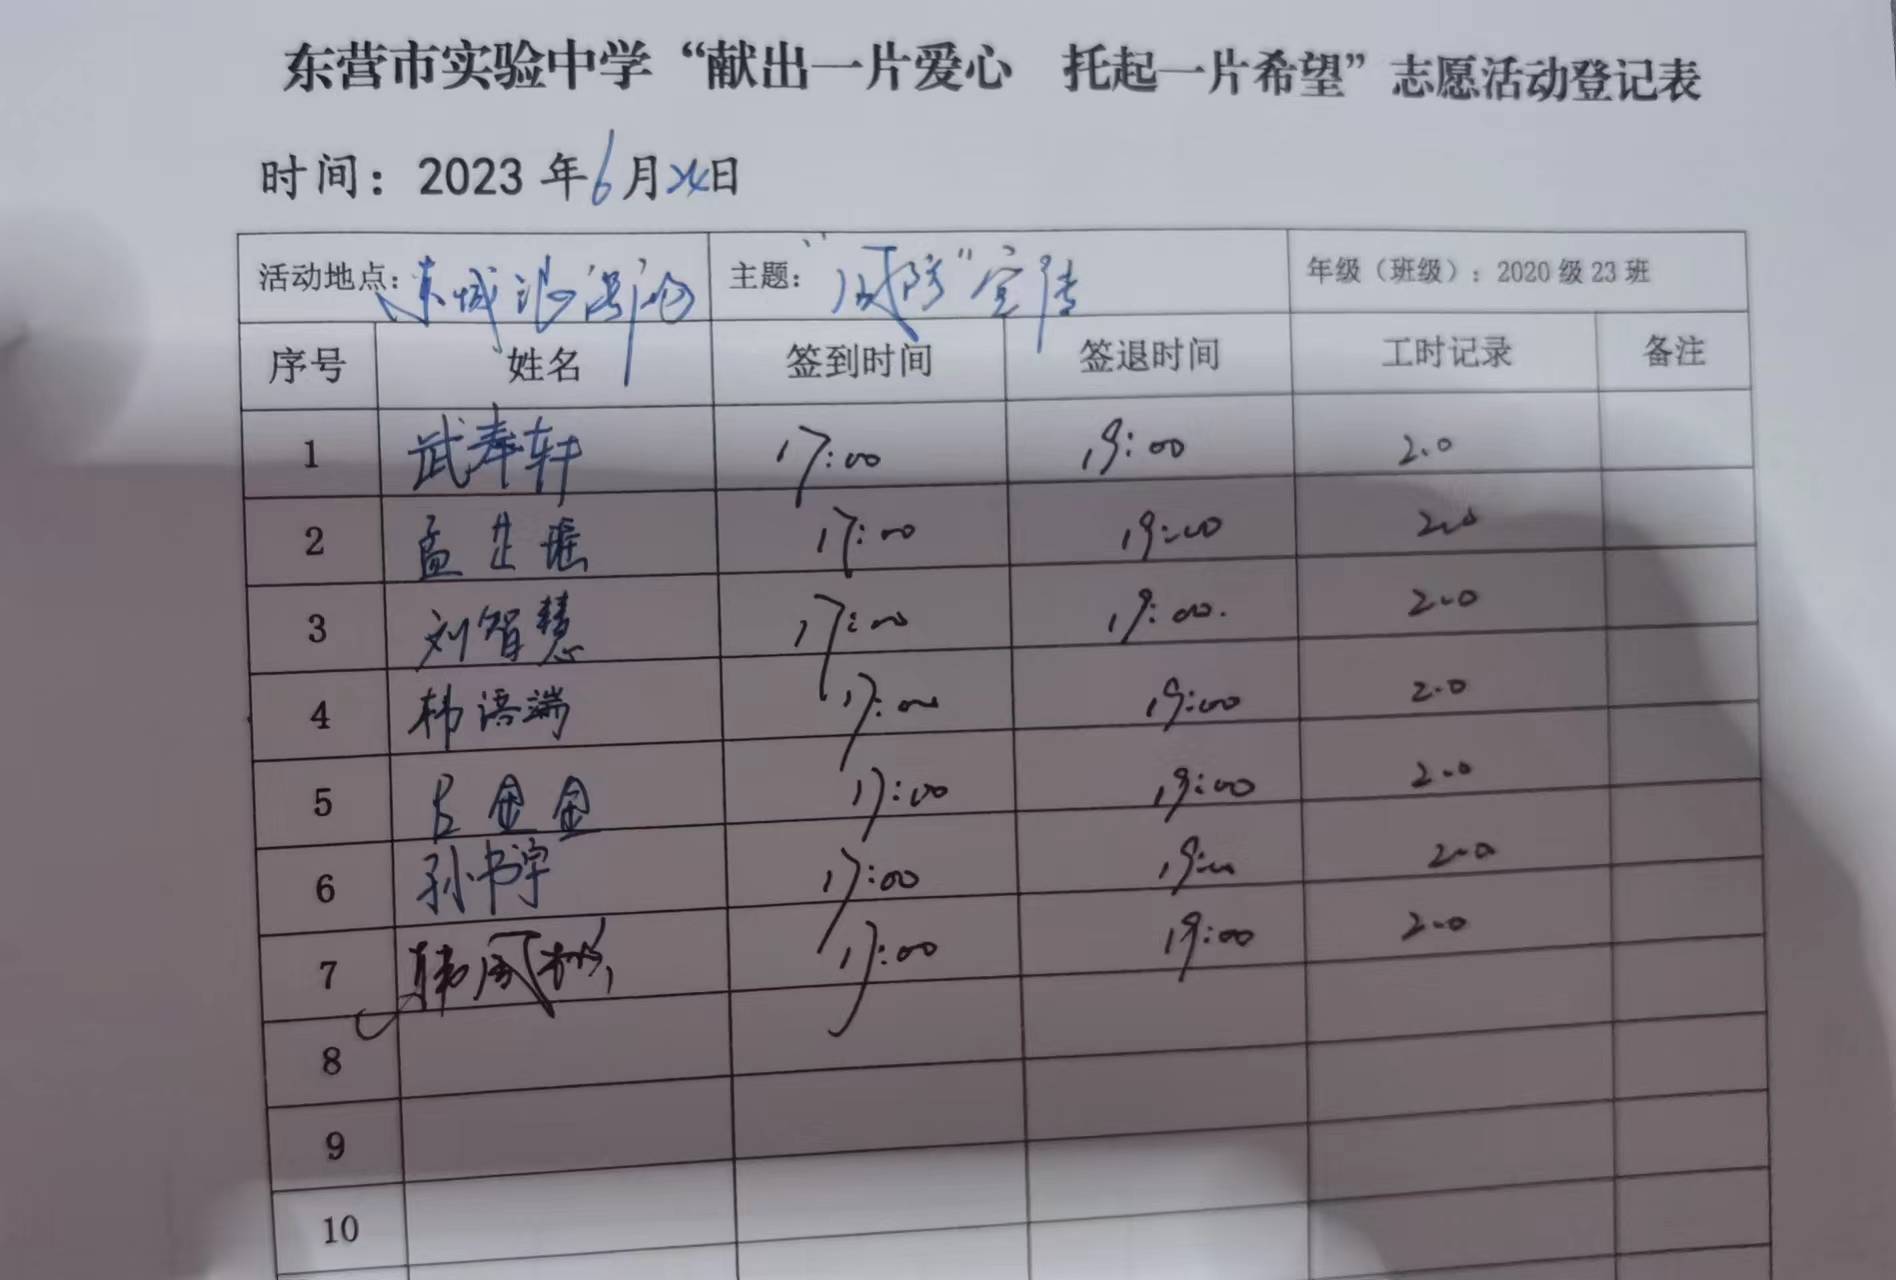 东营市实验中学“献出一片爱心 托起一片希望”志愿活动登记表
时间：2023 年 6 月 24 日
活动地点：东城 主题： 宣传 年级（班级）：2020 级 23 班
序号 姓名 签到时间 签退时间 工时记录 备注
1 武奉轩 17:00 19:00 2.0
2 孟 17:00 19:00 2.0
3 刘智慧 17:00 19:00. 2.0
4 韩语端 17:00 19:00 2.0
5 金金 17:00 19:00 2.0
6 孙书宇 17:00 19:00 2.0
7 韩 17:00 19:00 2.0
8
9
10